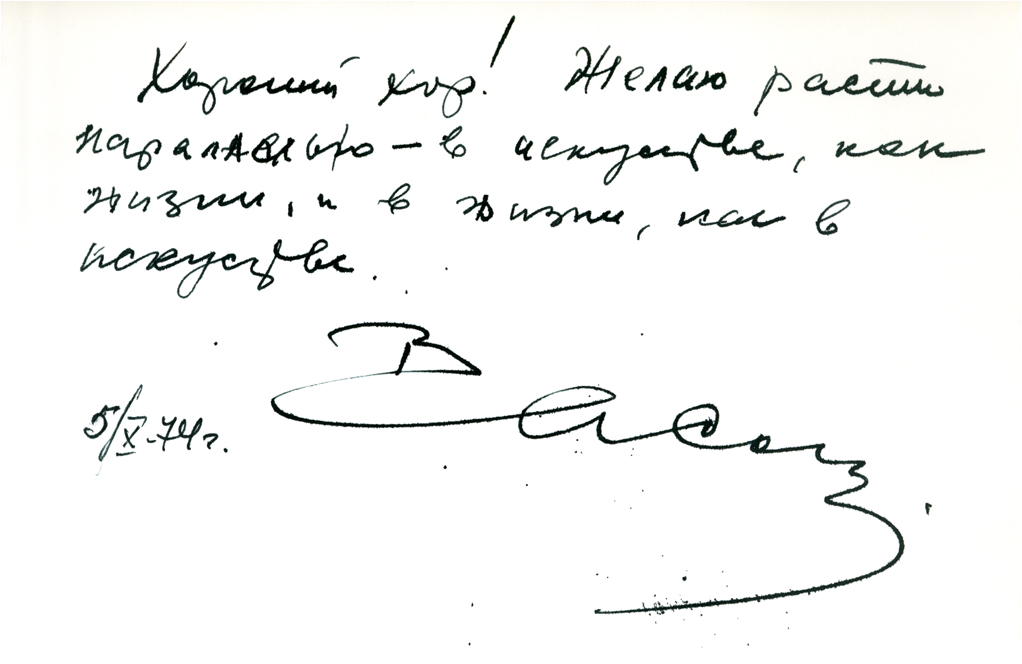 Хороший хор! Желаю расти
паралельно – в искусстве, как
жизни, и в жизни, как в
искусстве.
5/X-74г.